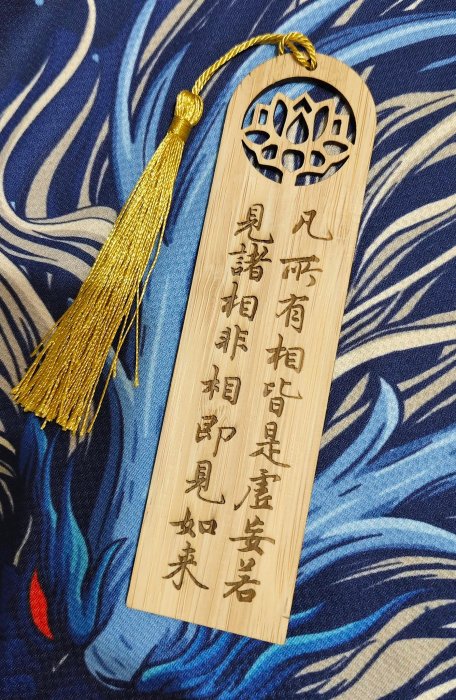 凡所有相皆是虚妄若
見諸相非相即見如来